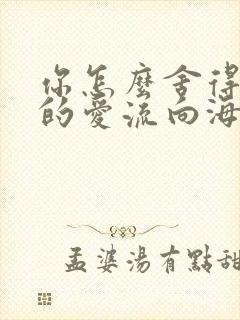 你怎麼舍得
的愛流向海
孟婆湯有點甜